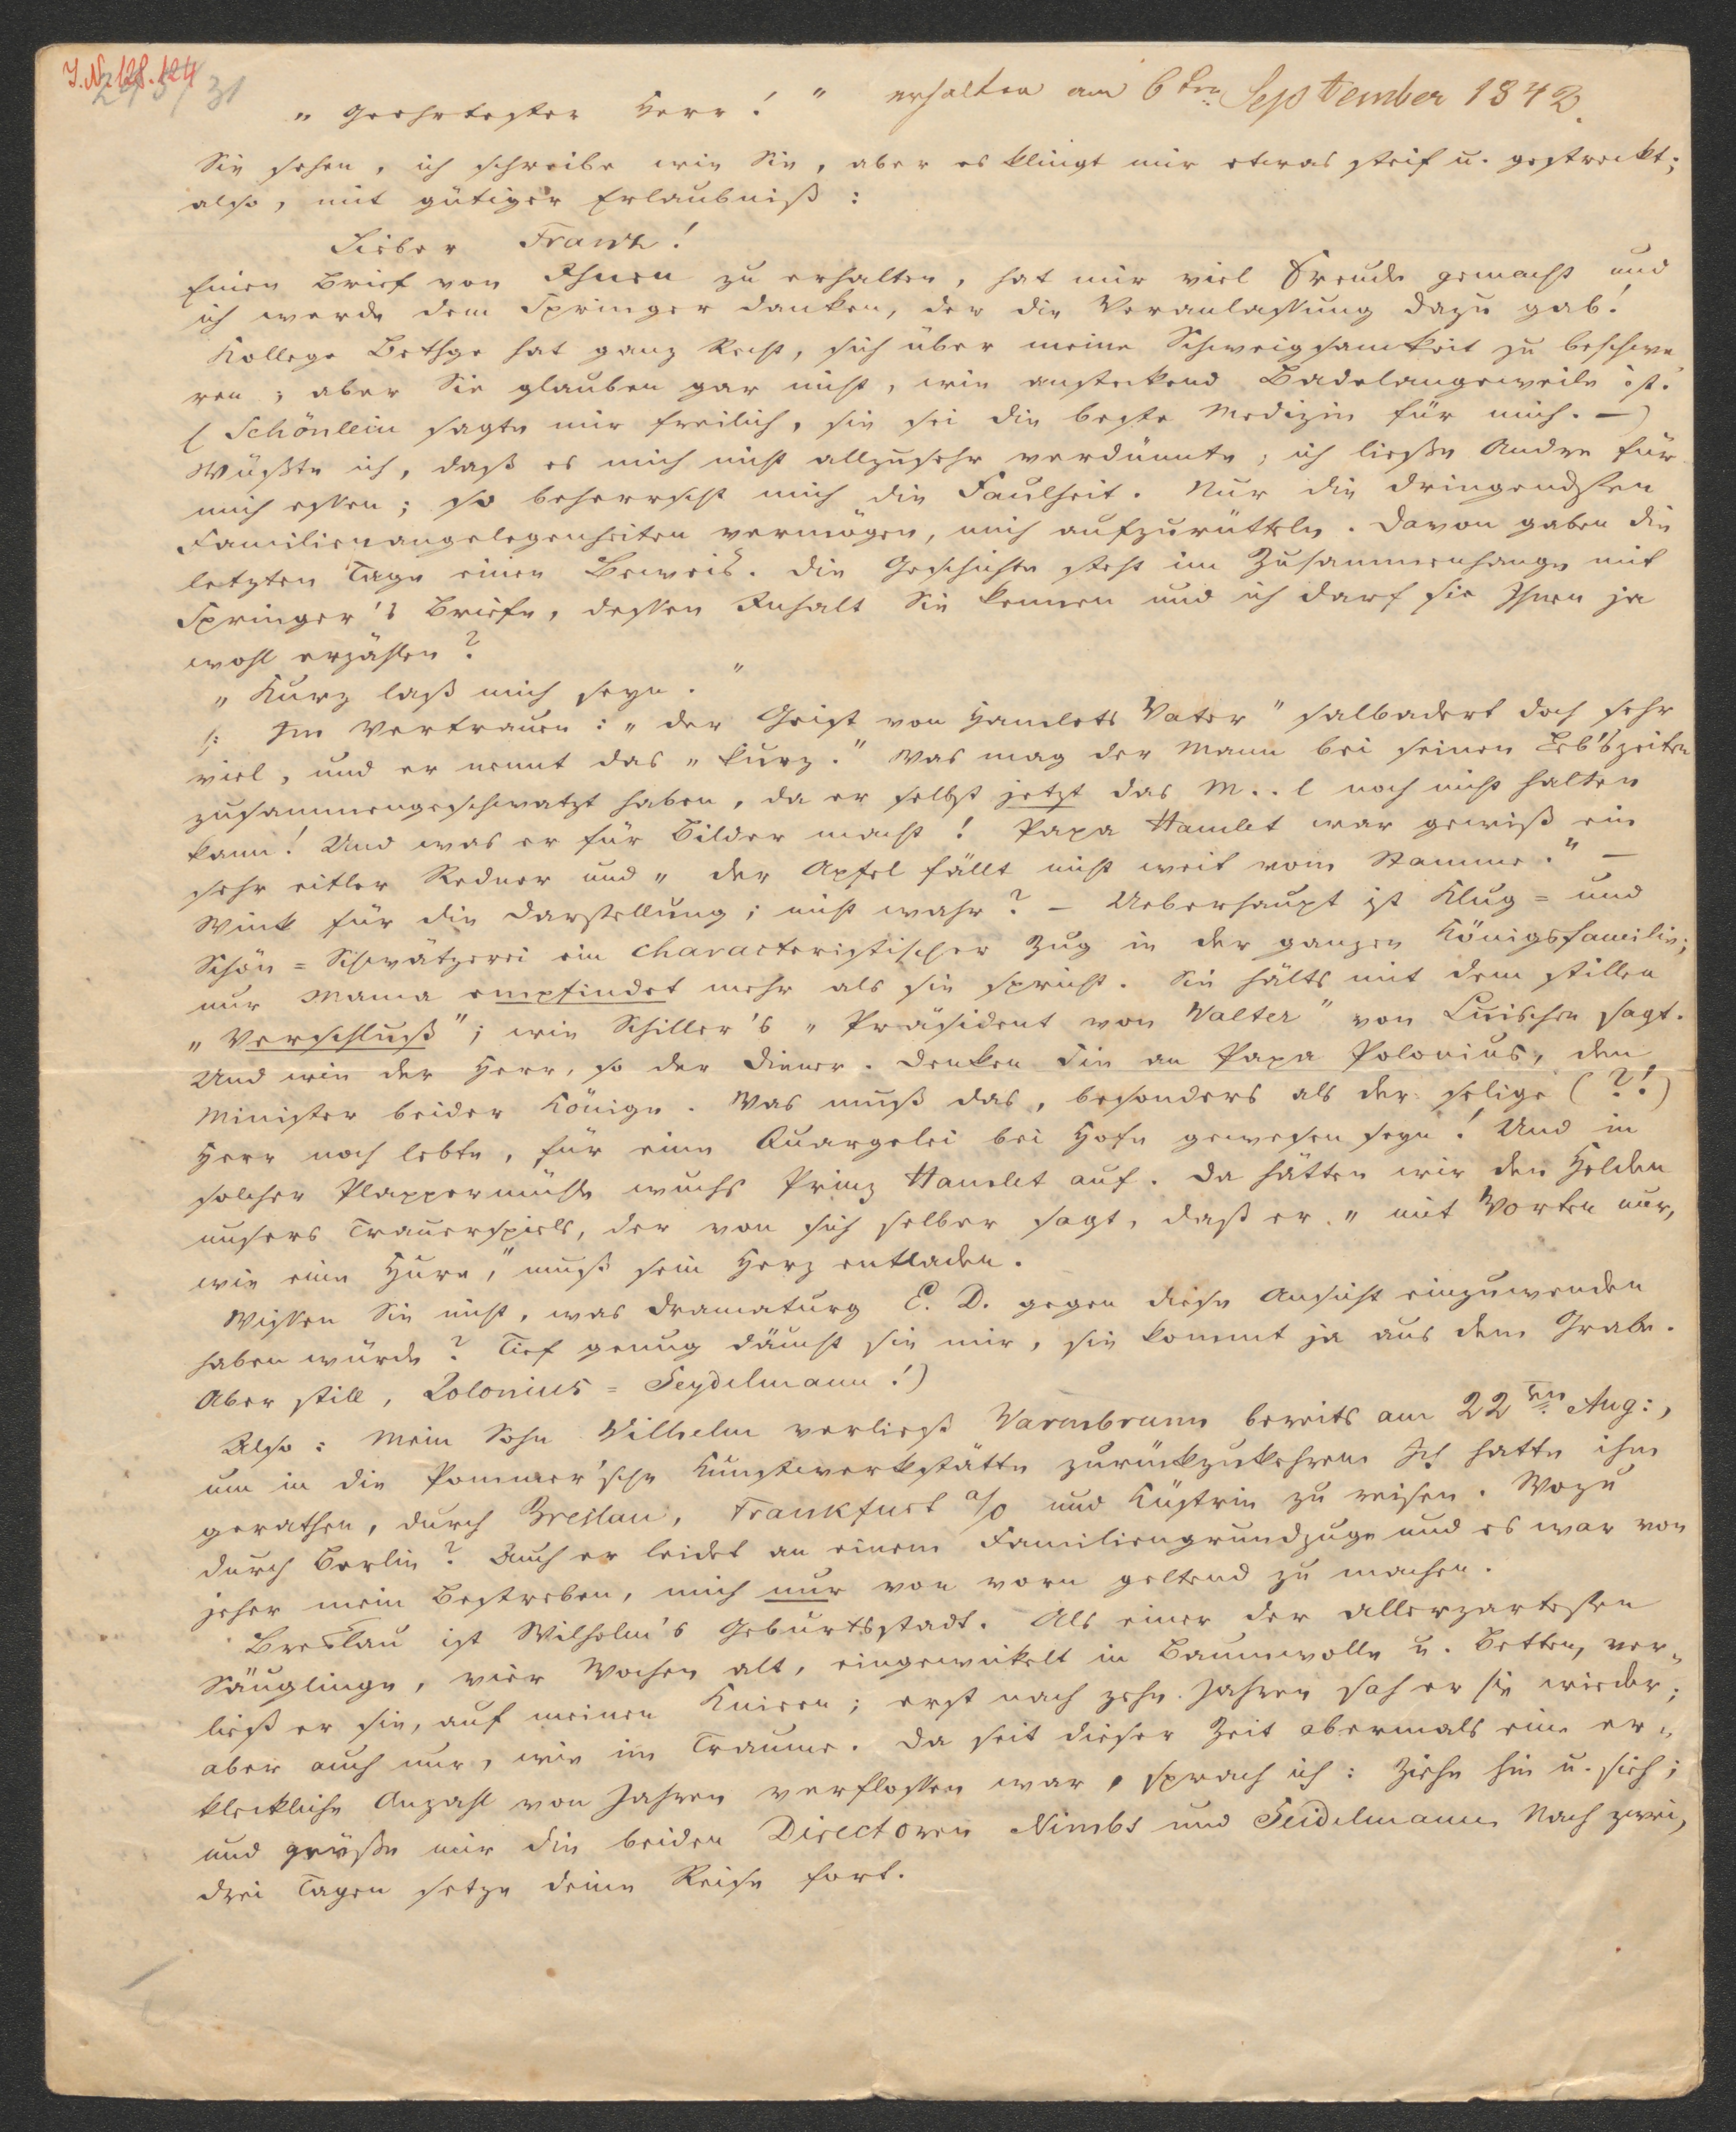 J.N. 128.124
275/31
„ Geehrtester Herr! “ erhalten am 6ten September 1842.
Sie sehen, ich schreibe wie Sie, aber es klingt mir etwas steif u. gestreckt;
also, mit gütiger Erlaubniß:
Lieber Frantz!
Einen Brief von Ihnen zu erhalten, hat mir viel Freude gemacht und
ich werde dem Springer danken, der die Veranlassung dazu gab!
Kollege Bethge hat ganz Recht, sich über meine Schweigsamkeit zu beschwe
ren; aber Sie glauben gar nicht, wie ansteckend Badelangeweile ist.
(Schönlein sagte mir freilich, sie sei die beste Medizin für mich. —)
Wüßte ich, daß es mich nicht allzusehr verdünnte, ich ließe Andre für
mich essen; so beherrscht mich die Faulheit. Nur die dringendsten
Familienangelegenheiten vermögen, mich aufzurütteln. Davon gaben die
letzten Tage einen Beweis. Die Geschichte steht im Zusammenhange mit
Springer's Briefe, dessen Inhalt Sie kennen und ich darf sie Ihnen ja
wohl erzählen?
„ Kurz laß mich seyn. “
(: Im Vertrauen: „ der Geist von Hamlets Vater “ salbadert doch sehr
viel, und er nennt das „ kurz. “ Was mag der Mann bei seinen Leb'szeiten
zusammengeschwatzt haben, da er selbst jetzt das M..l noch nicht halten
kann! Und was er für Bilder macht! Papa Hamlet war gewiß ein
sehr eitler Redner und „ der Apfel fällt nicht weit vom Stamme. “ —
Wink für die Darstellung; nicht wahr? — Ueberhaupt ist Klug= und
Schön=Schwätzerei ein characteristischer Zug in der ganzen Königsfamilie;
nur Mama empfindet mehr als sie spricht. Sie hälts mit dem stillen
„ Verschluß “; wie Schiller's „ Präsident von Walter “ von Luischen sagt.
Und wie der Herr, so der Diener. Denken Sie an Papa Polonius, den
Minister beider Könige. Was muß das, besonders als der selige (?!)
Herr noch lebte, für eine Quargelei bei Hofe gewesen seyn! Und in
solcher Plappermühle wuchs Prinz Hamlet auf. Da hätten wir den Helden
unsers Trauerspiels, der von sich selber sagt, daß er „ mit Worten nur,
wie eine Hure, “ muß sein Herz entladen.
Wissen Sie nicht, was Dramaturg E. D. gegen diese Ansicht einzuwenden
haben würde? Tief genug däucht sie mir, sie kommt ja aus dem Grabe.
Aber still, Polonius=Seydelmann!)
Also: Mein Sohn Wilhelm verließ Warmbrunn bereits am 22ten Aug:,
um in die Pommer'sche Kunstwerkstätte zurückzukehren. Ich hatte ihm
gerathen, durch Breslau, Frankfurt a/o und Küstrin zu reisen. Wozu
durch Berlin? Auch er leidet an einem Familiengrundzuge und es war von
jeher mein Bestreben, mich nur von vorn geltend zu machen.
Breslau ist Wilhelm's Geburtsstadt. Als einer der allerzartesten
Säuglinge, vier Wochen alt, eingewickelt in Baumwolle u. Betten, ver„
ließ er sie, auf meinen Knieen; erst nach zehn Jahren sah er sie wieder;
aber auch nur, wie im Traume. Da seit dieser Zeit abermals eine er„
kleckliche Anzahl von Jahren verflossen war, sprach ich: Ziehe hin u. sieh;
und grüße mir die beiden Directoren Nimbs und Seidelmann. Nach zwei,
drei Tagen setze deine Reise fort.